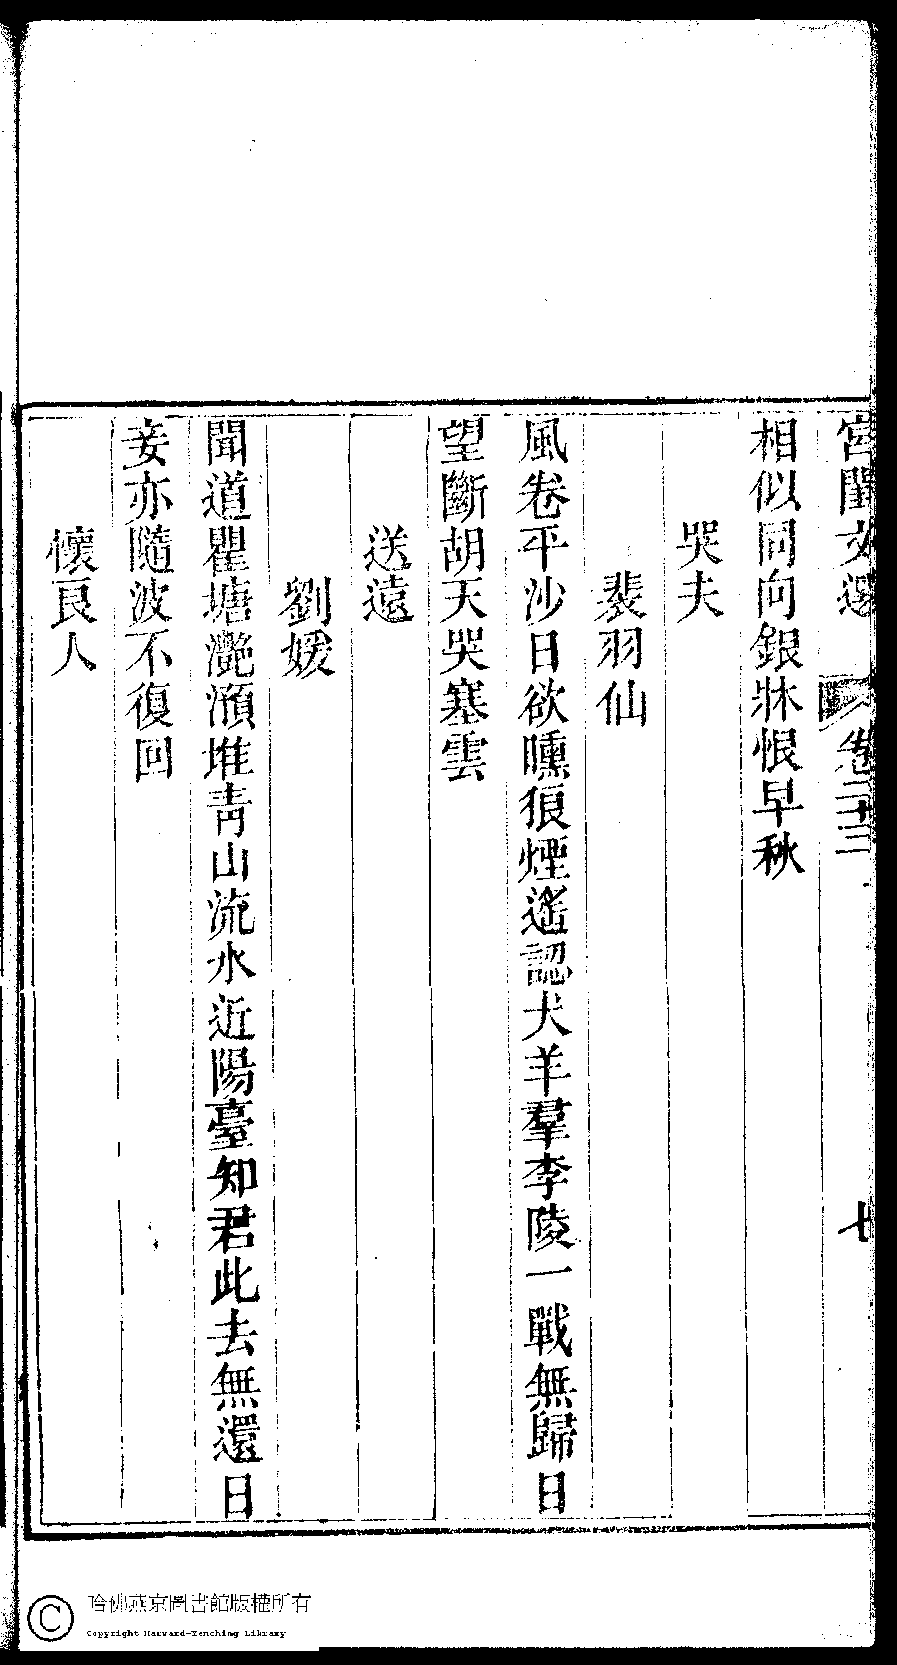 宮閨文選　卷二十三　七
相似同向銀牀恨早秋
哭夫
裴羽仙
風卷平沙日欲曛狼煙遙認犬羊羣李陵一戰無歸日
望斷胡天哭塞雲
送遠
劉媛
聞道瞿塘灧澦堆青山流水近陽臺知君此去無還日
妾亦隨波不復回
懷良人
哈佛燕京圖書館版權所有
Copyright Harvard-Yenching Library